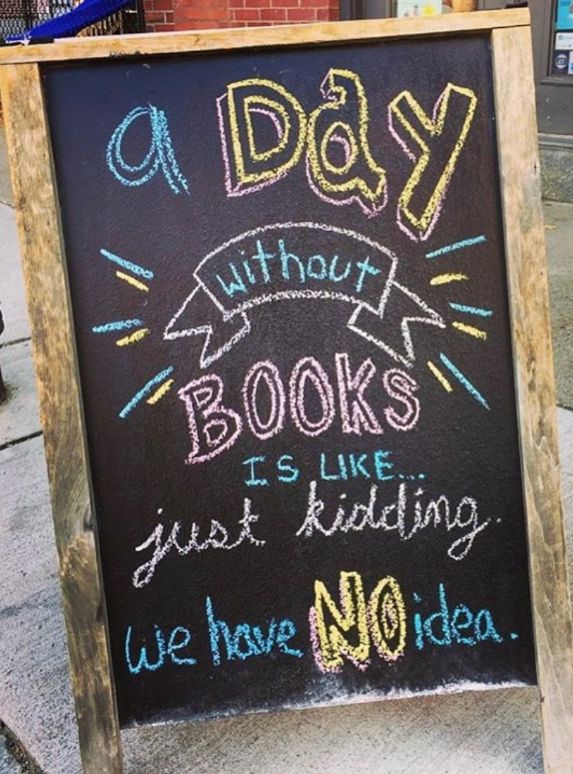 a DAY
without
BOOKS
IS LIKE...
just kidding.
we have NO idea.